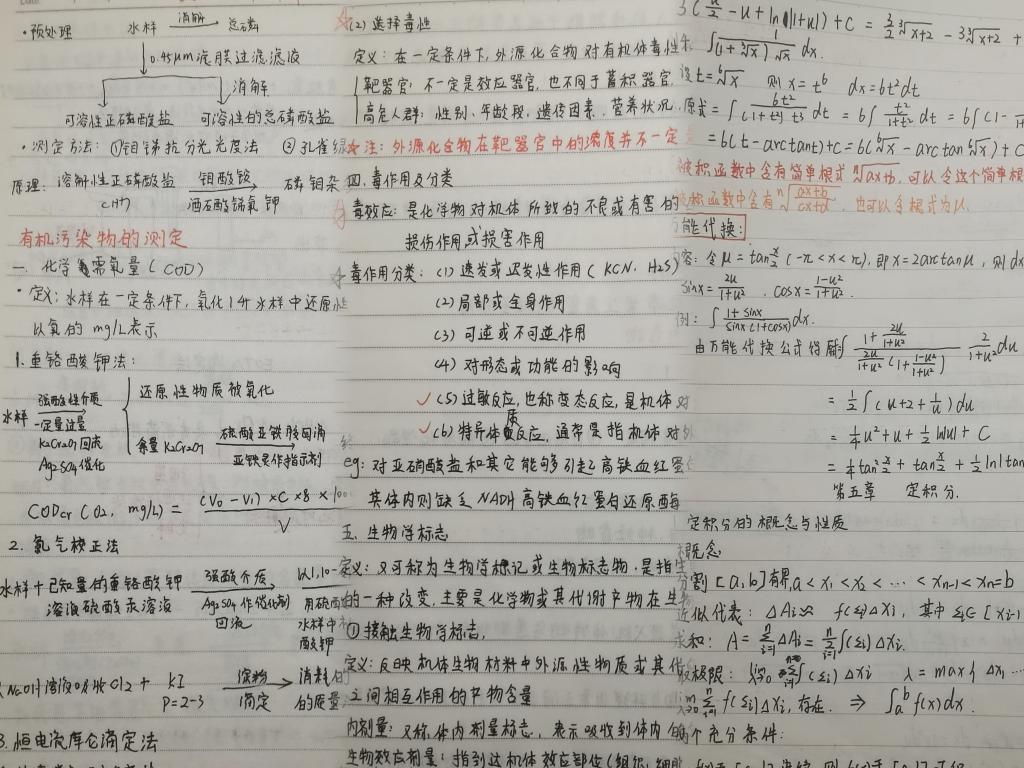 ·预处理 水样 消解 总磷
0.45μm滤膜过滤滤液
消解
可溶性正磷酸盐 可溶性的总磷酸盐
·测定方法：①钼锑抗分光光度法 ②孔雀绿
原理：溶解性正磷酸盐 钼酸铵 磷钼杂
(H⁺) 酒石酸锑氧钾
有机污染物的测定
一、化学需氧量（COD）
·定义：水样在一定条件下，氧化1升水样中还原性
以氧的 mg/L表示
1.重铬酸钾法：
水样 强酸性介质 还原性物质被氧化
一定量过量
K₂Cr₂O₇回流 余量 K₂Cr₂O₇ 硫酸亚铁胺回滴
Ag₂SO₄催化 亚铁灵作指示剂
CODcr (O₂, mg/L) = (V₀-V₁)×C×8×100
V
2.氯气校正法
水样+已知量的重铬酸钾 强酸介质 以1,10-
溶液硫酸汞溶液 Ag₂SO₄作催化剂 用硫酸
回流 水样中
酸钾
NaOH溶液吸收Cl₂ + KI 淀粉 消耗的
P=2-3 滴定 的质量
3.恒电流库仑滴定法
(2)选择毒性
定义：在一定条件下，外源化合物对有机体毒性
靶器官：不一定是效应器官，也不同于蓄积器官
高危人群：性别、年龄段，遗传因素，营养状况
注：外源化合物在靶器官中的浓度并不一定
四、毒作用及分类
毒效应：是化学物对机体所致的不良或有害的
损伤作用或损害作用
毒作用分类：(1)速发或迟发性作用（KCN、H₂S）
(2)局部或全身作用
(3)可逆或不可逆作用
(4)对形态或功能的影响
(5)过敏反应，也称变态反应，是机体对
(6)特异体质反应，通常是指机体对外
eg：对亚硝酸盐和其它能够引起高铁血红蛋
其体内则缺乏NADH高铁血红蛋白还原酶
五、生物学标志
定义：又可称为生物学标记或生物标志物，是指
的一种改变，主要是化学物或其代谢产物在生
①接触生物学标志，
定义：反映机体生物材料中外源性物质或其代
之间相互作用的产物含量
内剂量：又称体内剂量标志，表示吸收到体内
生物效应剂量：指到达机体效应部位（组织，细胞
-u+ln|1+u|)+C = 3/2 ∛x+2 - 3∛x+2 +
∫ 1/((1+∛x)√x) dx.
t=⁶√x 则 x=t⁶ dx=6t⁵dt
原式=∫ 6t²/((1+t²)t³) dt = 6∫ t²/(1+t²) dt = 6∫(1-
=6(t-arctant)+C=6(⁶√x-arctan⁶√x)+C
被积函数中含有简单根式 ⁿ√ax+b，可以令这个简单根
被积函数中含有 ⁿ√(ax+b)/(cx+d)，也可以令根式为u.
能代换：
容：令u=tan x/2 (-π<x<π)，即x=2arctanu，则dx
sinx=2u/(1+u²)，cosx=(1-u²)/(1+u²).
例：∫ (1+sinx)/(sinx(1+cosx)) dx.
由万能代换公式得原∫ (1+2u/(1+u²))/(2u/(1+u²)(1+(1-u²)/(1+u²))) 2/(1+u²) du
=1/2∫(u+2+1/u)du
=1/4u²+u+1/2ln|u|+C
=1/4tan²x/2+tanx/2+1/2ln|tan
第五章 定积分.
定积分的概念与性质
概念
分割[a,b]有a<x₁<x₂<…<xₙ₋₁<xₙ=b
近似代表：ΔAi≈f(ξi)Δxi，其中ξi∈[xi-1
求和：A=∑ΔAi=∑f(ξi)Δxi.
取极限：lim ∑f(ξi)Δxi λ=max{Δx₁…
lim∑f(ξi)Δxi，存在. ⇒ ∫ₐᵇf(x)dx.
个充分条件：